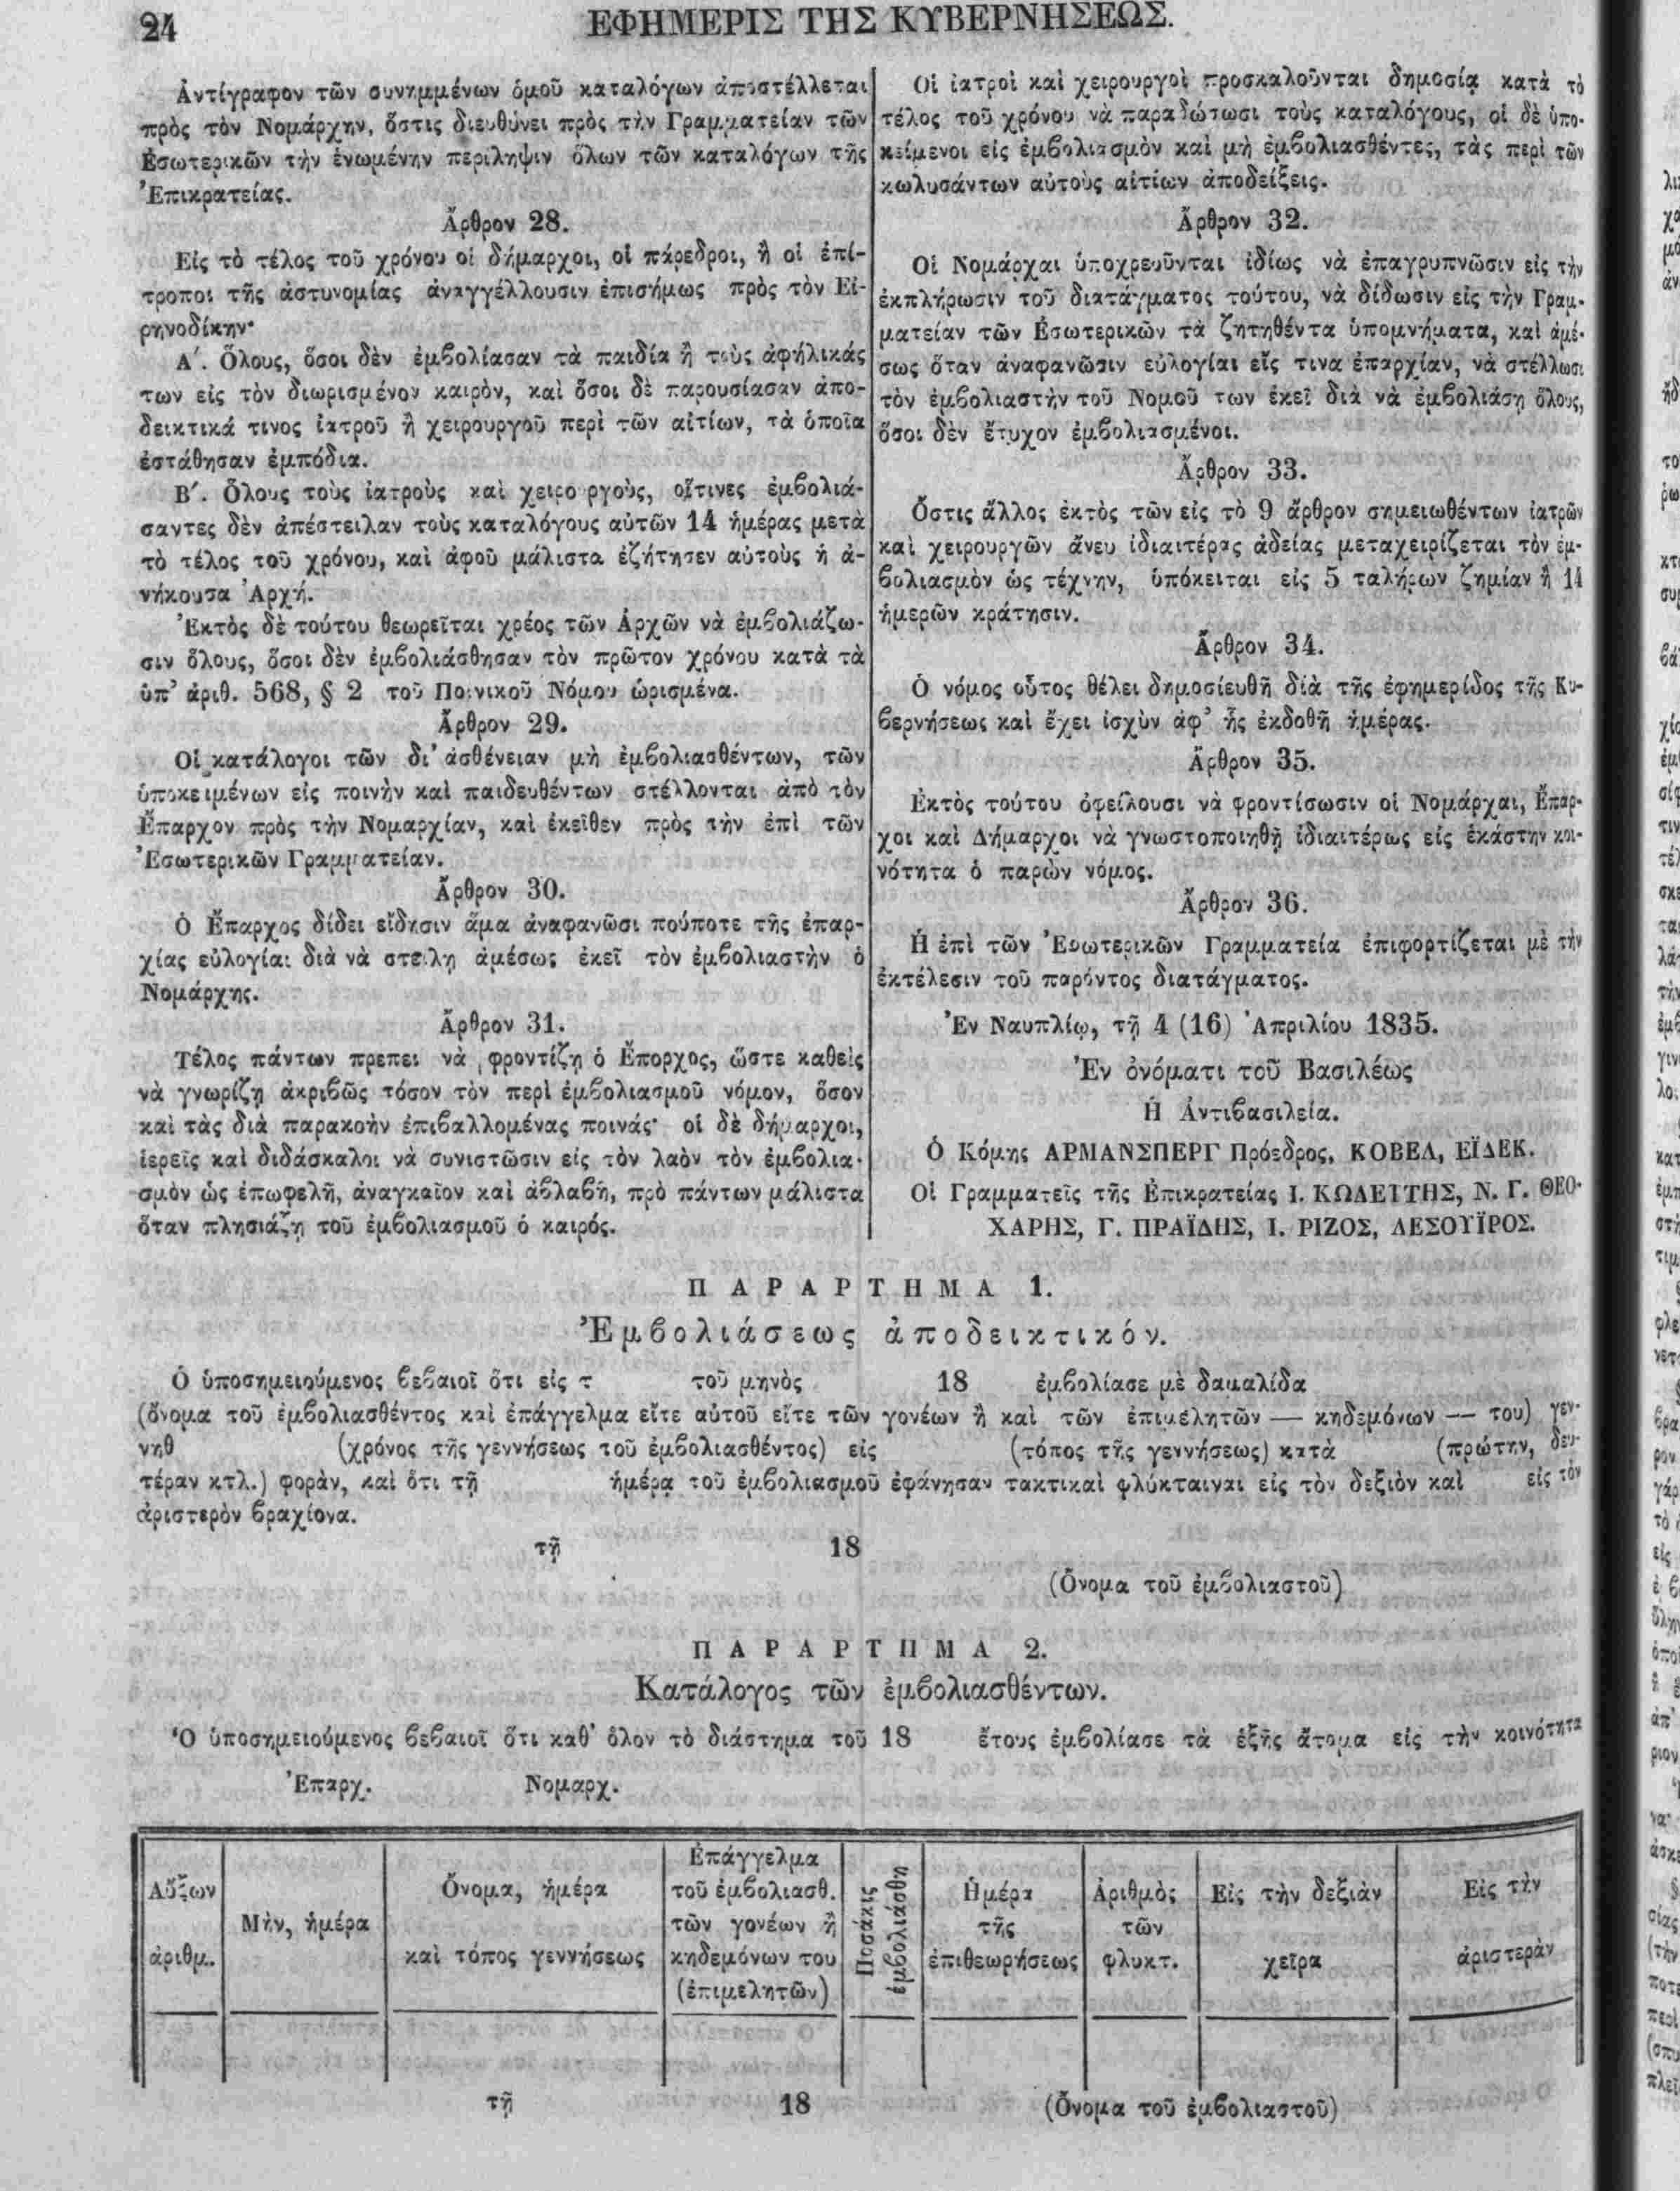 24
ΕΦΗΜΕΡΙΣ ΤΗΣ ΚΥΒΕΡΝΗΣΕΩΣ.
Ἀντίγραφον τῶν συνημμένων ὁμοῦ καταλόγων ἀποστέλλεται
πρὸς τὸν Νομάρχην, ὅστις διευθύνει πρὸς τὴν Γραμματείαν τῶν
Ἐσωτερικῶν τὴν ἑνωμένην περίληψιν ὅλων τῶν καταλόγων τῆς
Ἐπικρατείας.
Ἄρθρον 28.
Εἰς τὸ τέλος τοῦ χρόνου οἱ δήμαρχοι, οἱ πάρεδροι, ἢ οἱ ἐπί-
τροποι τῆς ἀστυνομίας ἀναγγέλλουσιν ἐπισήμως πρὸς τὸν Εἰ-
ρηνοδίκην·
Α΄. Ὅλους, ὅσοι δὲν ἐμβολίασαν τὰ παιδία ἢ τοὺς ἀφήλικάς
των εἰς τὸν διωρισμένον καιρὸν, καὶ ὅσοι δὲ παρουσίασαν ἀπο-
δεικτικά τινος ἰατροῦ ἢ χειρουργοῦ περὶ τῶν αἰτίων, τὰ ὁποῖα
ἐστάθησαν ἐμπόδια.
Β΄. Ὅλους τοὺς ἰατροὺς καὶ χειρο ργοὺς, οἵτινες ἐμβολιά-
σαντες δὲν ἀπέστειλαν τοὺς καταλόγους αὐτῶν 14 ἡμέρας μετὰ
τὸ τέλος τοῦ χρόνου, καὶ ἀφοῦ μάλιστα ἐζήτησεν αὐτοὺς ἡ ἀ-
νήκουσα Ἀρχή.
Ἐκτὸς δὲ τούτου θεωρεῖται χρέος τῶν Ἀρχῶν νὰ ἐμβολιάζω-
σιν ὅλους, ὅσοι δὲν ἐμβολιάσθησαν τὸν πρῶτον χρόνου κατὰ τὰ
ὑπ’ ἀριθ. 568, § 2 τοῦ Ποινικοῦ Νόμου ὡρισμένα.
Ἄρθρον 29.
Οἱ κατάλογοι τῶν δι’ ἀσθένειαν μὴ ἐμβολιασθέντων, τῶν
ὑποκειμένων εἰς ποινὴν καὶ παιδευθέντων στέλλονται ἀπὸ τὸν
Ἔπαρχον πρὸς τὴν Νομαρχίαν, καὶ ἐκεῖθεν πρὸς τὴν ἐπὶ τῶν
Ἐσωτερικῶν Γραμματείαν.
Ἄρθρον 30.
Ὁ Ἔπαρχος δίδει εἴδησιν ἅμα ἀναφανῶσι πούποτε τῆς ἐπαρ-
χίας εὐλογίαι διὰ νὰ στείλῃ ἀμέσως ἐκεῖ τὸν ἐμβολιαστὴν ὁ
Νομάρχης.
Ἄρθρον 31.
Τέλος πάντων πρέπει νὰ φροντίζῃ ὁ Ἔπορχος, ὥστε καθεὶς
νὰ γνωρίζῃ ἀκριβῶς τόσον τὸν περὶ ἐμβολιασμοῦ νόμον, ὅσον
καὶ τὰς διὰ παρακοὴν ἐπιβαλλομένας ποινάς· οἱ δὲ δήμαρχοι,
ἱερεῖς καὶ διδάσκαλοι νὰ συνιστῶσιν εἰς τὸν λαὸν τὸν ἐμβολια-
σμὸν ὡς ἐπωφελῆ, ἀναγκαῖον καὶ ἀβλαβῆ, πρὸ πάντων μάλιστα
ὅταν πλησιάζῃ τοῦ ἐμβολιασμοῦ ὁ καιρός.
Οἱ ἰατροὶ καὶ χειρουργοὶ προσκαλοῦνται δημοσίᾳ κατὰ τὸ
τέλος τοῦ χρόνου νὰ παραδώσωσι τοὺς καταλόγους, οἱ δὲ ὑπο-
κείμενοι εἰς ἐμβολιασμὸν καὶ μὴ ἐμβολιασθέντες, τὰς περὶ τῶν
κωλυσάντων αὐτοὺς αἰτίων ἀποδείξεις.
Ἄρθρον 32.
Οἱ Νομάρχαι ὑποχρεοῦνται ἰδίως νὰ ἐπαγρυπνῶσιν εἰς τὴν
ἐκπλήρωσιν τοῦ διατάγματος τούτου, νὰ δίδωσιν εἰς τὴν Γραμ-
ματείαν τῶν Ἐσωτερικῶν τὰ ζητηθέντα ὑπομνήματα, καὶ ἀμέ-
σως ὅταν ἀναφανῶσιν εὐλογίαι εἴς τινα ἐπαρχίαν, νὰ στέλλωσι
τὸν ἐμβολιαστὴν τοῦ Νομοῦ των ἐκεῖ διὰ νὰ ἐμβολιάσῃ ὅλους,
ὅσοι δὲν ἔτυχον ἐμβολιασμένοι.
Ἄρθρον 33.
Ὅστις ἄλλος ἐκτὸς τῶν εἰς τὸ 9 ἄρθρον σημειωθέντων ἰατρῶν
καὶ χειρουργῶν ἄνευ ἰδιαιτέρας ἀδείας μεταχειρίζεται τὸν ἐμ-
βολιασμὸν ὡς τέχνην, ὑπόκειται εἰς 5 ταλήρων ζημίαν ἢ 14
ἡμερῶν κράτησιν.
Ἄρθρον 34.
Ὁ νόμος οὗτος θέλει δημοσιευθῆ διὰ τῆς ἐφημερίδος τῆς Κυ-
βερνήσεως καὶ ἔχει ἰσχὺν ἀφ’ ἧς ἐκδοθῆ ἡμέρας.
Ἄρθρον 35.
Ἐκτὸς τούτου ὀφείλουσι νὰ φροντίσωσιν οἱ Νομάρχαι, Ἔπαρ-
χοι καὶ Δήμαρχοι νὰ γνωστοποιηθῇ ἰδιαιτέρως εἰς ἑκάστην κοι-
νότητα ὁ παρὼν νόμος.
Ἄρθρον 36.
Ἡ ἐπὶ τῶν Ἐσωτερικῶν Γραμματεία ἐπιφορτίζεται μὲ τὴν
ἐκτέλεσιν τοῦ παρόντος διατάγματος.
Ἐν Ναυπλίῳ, τῇ 4 (16) Ἀπριλίου 1835.
Ἐν ὀνόματι τοῦ Βασιλέως
Ἡ Ἀντιβασιλεία.
Ὁ Κόμης ΑΡΜΑΝΣΠΕΡΓ Πρόεδρος, ΚΟΒΕΛ, ΕΪΔΕΚ.
Οἱ Γραμματεῖς τῆς Ἐπικρατείας Ι. ΚΩΛΕΤΤΗΣ, Ν. Γ. ΘΕΟ-
ΧΑΡΗΣ, Γ. ΠΡΑΪΔΗΣ, Ι. ΡΙΖΟΣ, ΛΕΣΟΥΪΡΟΣ.
ΠΑΡΑΡΤΗΜΑ 1.
Ἐμβολιάσεως ἀποδεικτικόν.
Ὁ ὑποσημειούμενος βεβαιοῖ ὅτι εἰς τ τοῦ μηνὸς 18 ἐμβολίασε μὲ δαμαλίδα
(ὄνομα τοῦ ἐμβολιασθέντος καὶ ἐπάγγελμα εἴτε αὐτοῦ εἴτε τῶν γονέων ἢ καὶ τῶν ἐπιμελητῶν — κηδεμόνων — του) γεν-
νηθ (χρόνος τῆς γεννήσεως τοῦ ἐμβολιασθέντος) εἰς (τόπος τῆς γεννήσεως) κατὰ (πρώτην, δευ-
τέραν κτλ.) φορὰν, καὶ ὅτι τῇ ἡμέρᾳ τοῦ ἐμβολιασμοῦ ἐφάνησαν τακτικαὶ φλύκταιναι εἰς τὸν δεξιὸν καὶ εἰς τὸν
ἀριστερὸν βραχίονα.
τῇ 18
(Ὄνομα τοῦ ἐμβολιαστοῦ)
ΠΑΡΑΡΤΗΜΑ 2.
Κατάλογος τῶν ἐμβολιασθέντων.
Ὁ ὑποσημειούμενος βεβαιοῖ ὅτι καθ’ ὅλον τὸ διάστημα τοῦ 18 ἔτους ἐμβολίασε τὰ ἑξῆς ἄτομα εἰς τὴν κοινότητα
Ἐπαρχ. Νομαρχ.
Αὔξων
ἀριθμ.
Μὴν, ἡμέρα
Ὄνομα, ἡμέρα
καὶ τόπος γεννήσεως
Ἐπάγγελμα
τοῦ ἐμβολιασθ.
τῶν γονέων ἢ
κηδεμόνων του
(ἐπιμελητῶν)
Ποσάκις
ἐμβολιάσθη
Ἡμέρα
τῆς
ἐπιθεωρήσεως
Ἀριθμὸς
τῶν
φλυκτ.
Εἰς τὴν δεξιὰν
χεῖρα
Εἰς τὴν
ἀριστερὰν
τῇ 18 (Ὄνομα τοῦ ἐμβολιαστοῦ)